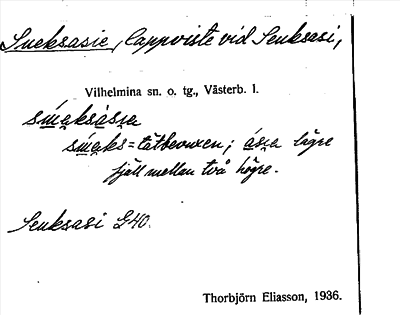 Sueksasie, lappviste vid Seuksasi,
Vilhelmina sn. o. tg., Västerb. l.
smaksásia
smaks = tätbevuxen; ásia lägre
fjäll mellan två högre.
Seuksasi G40.
Thorbjörn Eliasson, 1936.